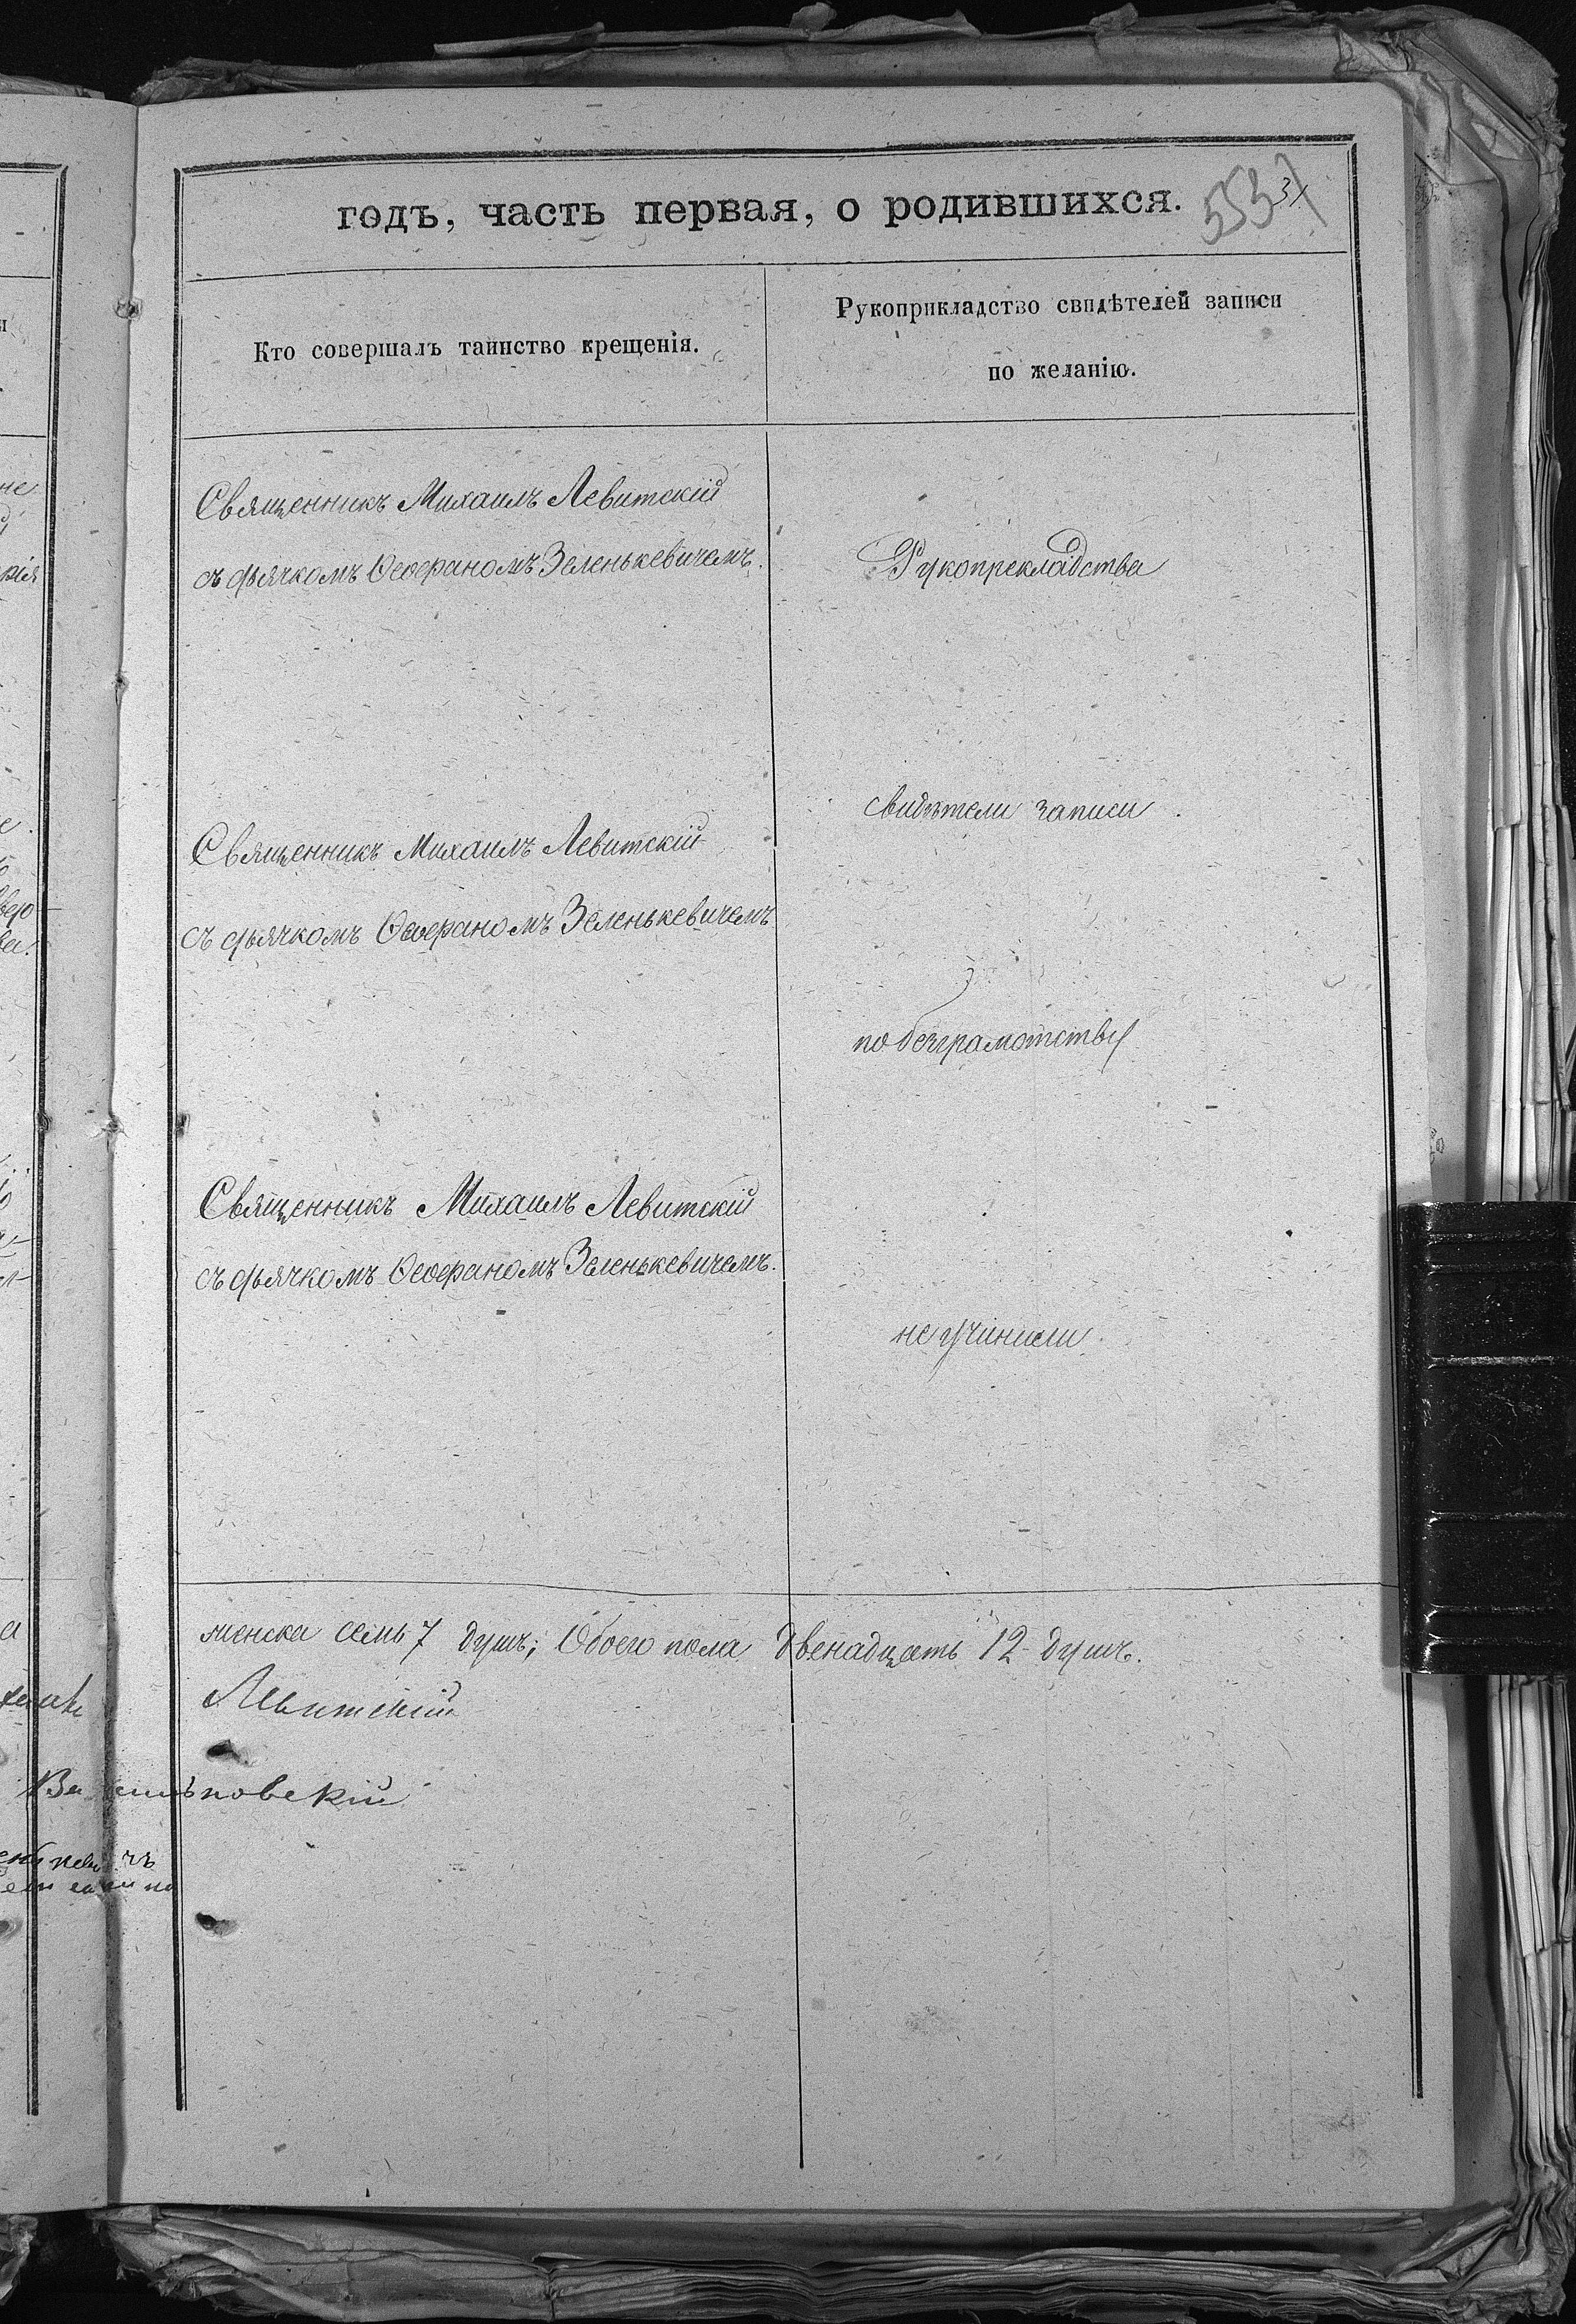 годъ, часть первая, о родившихся.
553
31
Кто совершалъ таинство крещенія.
Рукоприкладство свидѣтелей записи
по желанію.
Священникъ Михаилъ Левитскій
съ дьячкомъ Ѳеофаномъ Зеленькевичемъ.
Рукопрекладства
свидѣтели записи
Священникъ Михаилъ Левитскій
съ дьячкомъ Ѳеофаномъ Зеленькевичемъ
по безграмотству
Священникъ Михаилъ Левитскій
съ дьячкомъ Ѳеофаномъ Зеленькевичемъ.
не учинили
женска семь 7 душъ; Обоего пола двенадцать 12 душъ.
Левитскій